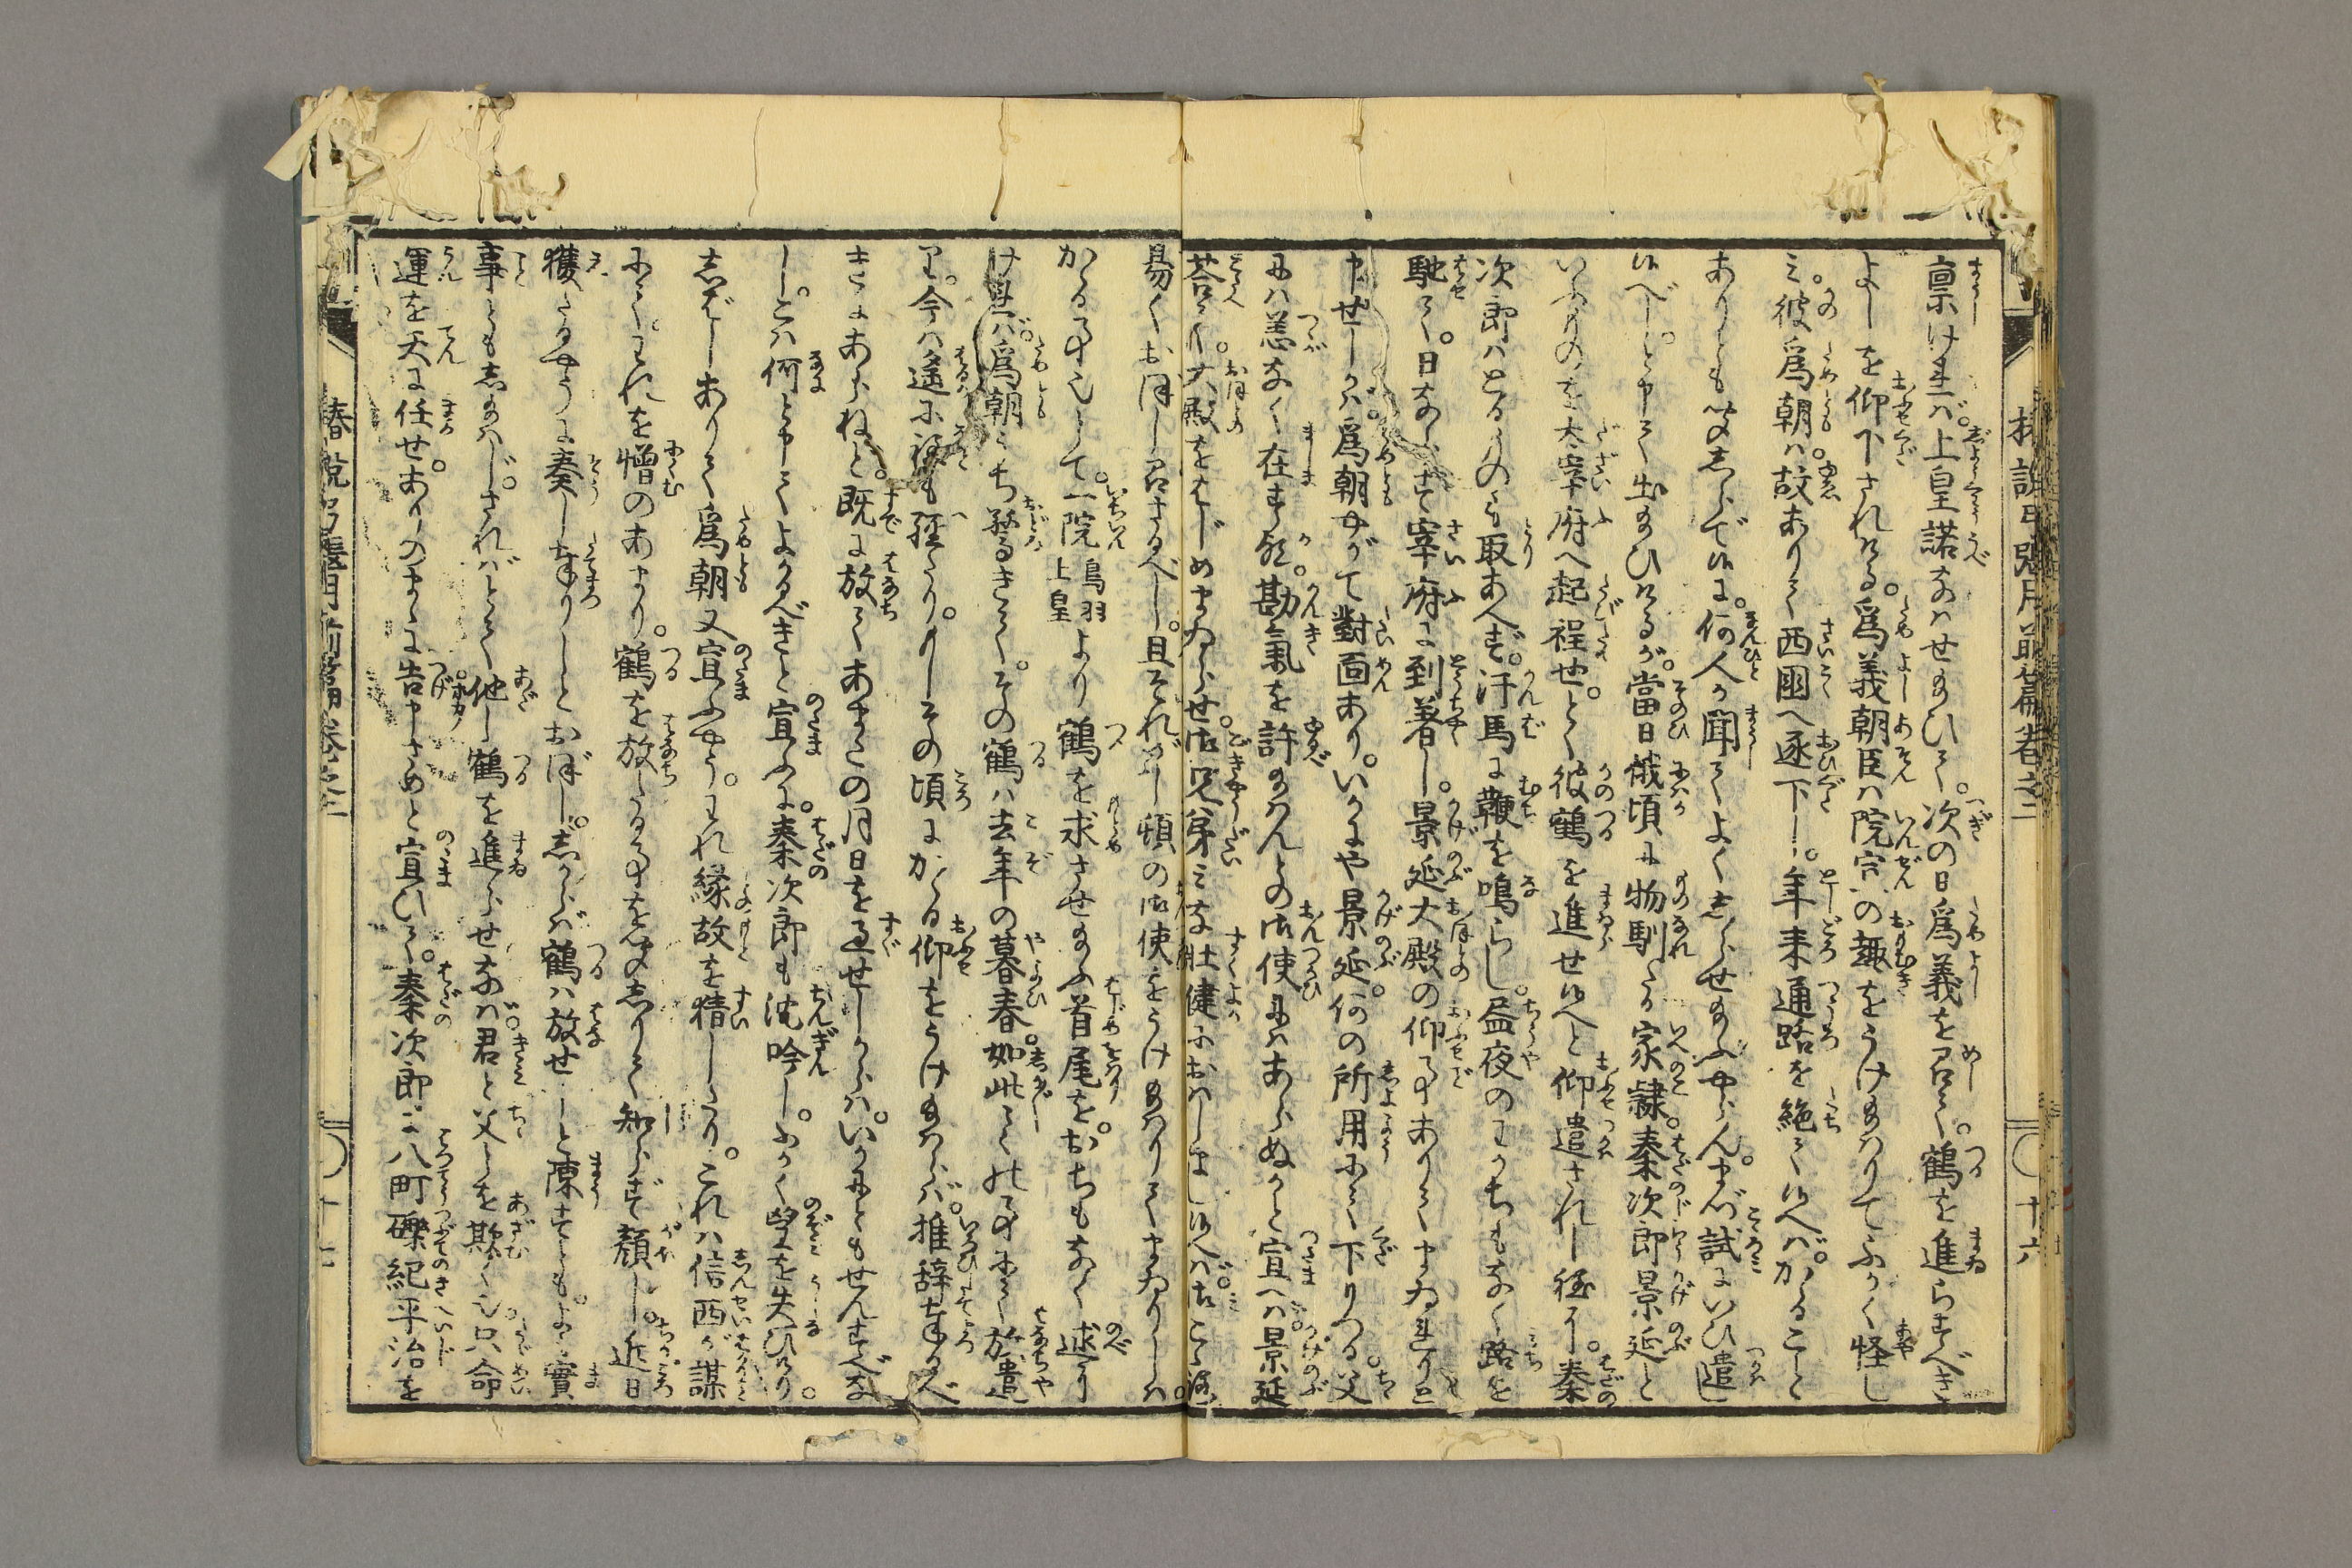 稟けれバ。上皇諾なハせ給ひて。次の日爲義を召て。鶴を進らすべき
よしを仰下されける。爲義朝臣ハ院宣の趣をうけ給ハりてふかく怪し
み。彼爲朝ハ。故ありて西國へ逐下し。年來通路を絶て候へバ。かゝること
ありとも聞しらで候に。何人か聞てよくしらせ給ふやらん。まづ試にいひ遣し
候べし。と申て出給ひけるが。當日俄頃に物馴たる家隷。秦次郎景延と
いふものを大宰府へ起程せ。とく彼鶴を進せ候へと仰遣されし程に。秦
次郎ハとるものも取あへず。汗馬に鞭を鳴らし。晝夜のわかちもなく路を
馳て。日ならず宰府に到着し。景延大殿の仰事ありてまゐれりと
申せしかバ。爲朝やがて對面あり。いかにや景延。何の所用にて下りつる。父
にハ恙なく在すか。勘氣を許給ハんとの御使にハあらぬかと宣へバ。景延
荅て。大殿をはじめまゐらせ。御兄弟みな壯健におハしまし候へバ。御こゝろ
易くおぼし召さるべし。且それがし頓の御使をうけ給ハりてまゐりしハ。
かゝる事にて。一院鳥羽上皇より鶴を求させ給ふ首尾を。おちもなく述
けれバ。爲朝うち驚きて。その鶴ハ去年の暮春。如此々々の事にて放遣
て。今ハ遙に程も經たり。もしその頃にかゝる仰をうけ給ハらバ。推辞奉るべ
きにあらねど。既に放てあまたの月日を過せしからハ。いかにともせんすべな
し。こハ何と申てよかるべきと宣ふに。秦次郎も沈吟し。ふかく望を失ひけり。
しばしありて爲朝又宣ふやう。われ縁故を猜したり。これハ信西が謀
にて。われを憎のあまり。鶴を放たる事を聞しりて知らず顔し。近日
獲たるやうに奏し奉りしとおぼし。しからバ鶴ハ放せしと陳すとも。よも實
事ともし給ハじ。さればとて他し鶴を進らせなバ。君と父とを欺くに似たり。只命
運を天に任せ。ありのまゝに告申さめと宣ひて。秦次郎に八町礫紀平治を
椿説弓張月前篇卷之二
十六
椿説弓張月前篇卷之二